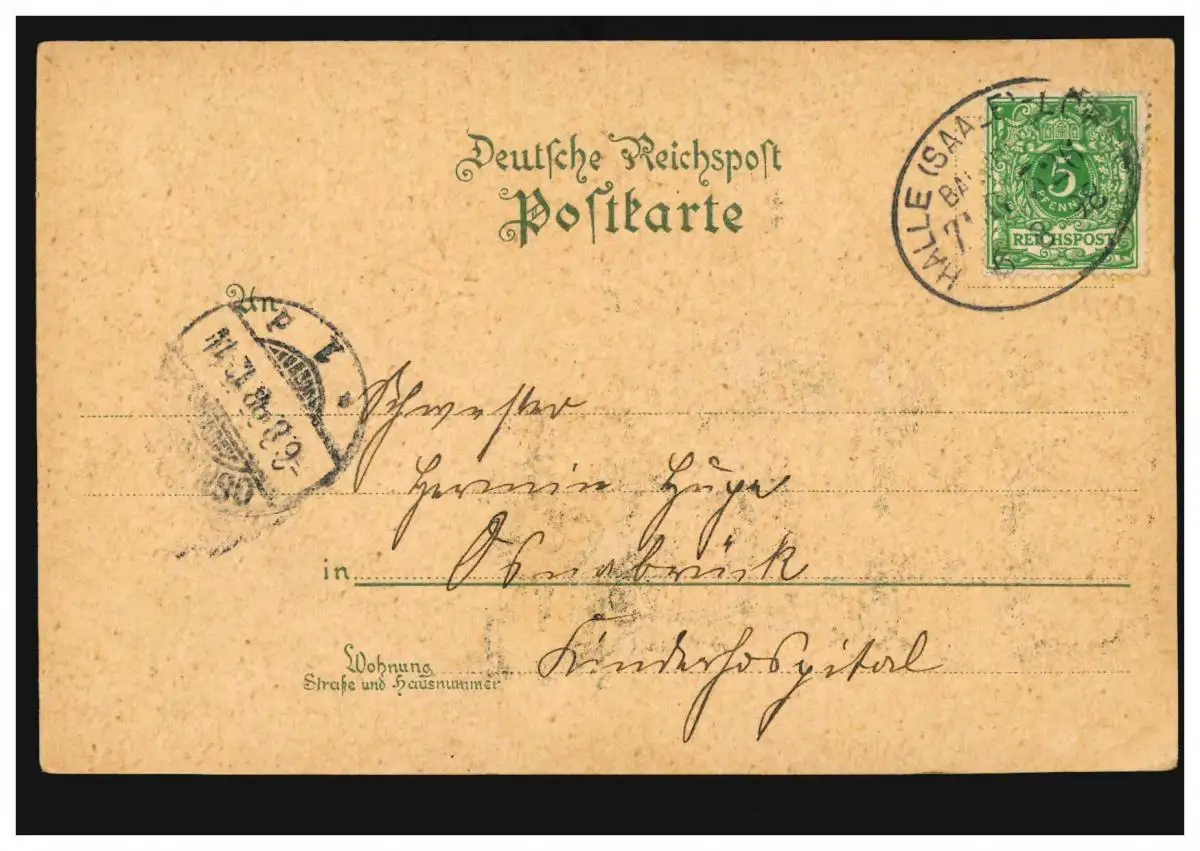 Deutsche Reichspost
Postkarte
HALLE (SAALE)
5
PFENNIG
REICHSPOST
6 8 98
An
6.8.98
Schwester
Hermin Hüpe
in Osnabrück
Wohnung
Straße und Hausnummer
Kinderhospital